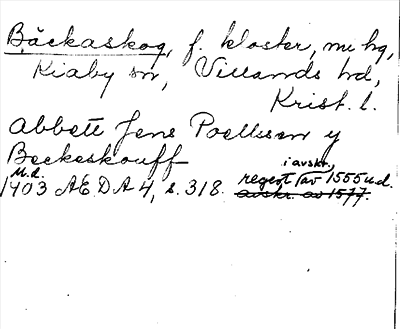 Bäckaskog, f. kloster, nu hg,
Kiaby sn, Villands hd,
Krist. l.
Abbett Jens Poellsen y
Beckeskouff
u.d.
1403 AEDA 4, s. 318. regest i avskr. av 1555 u.d.
avskr. av 1577.